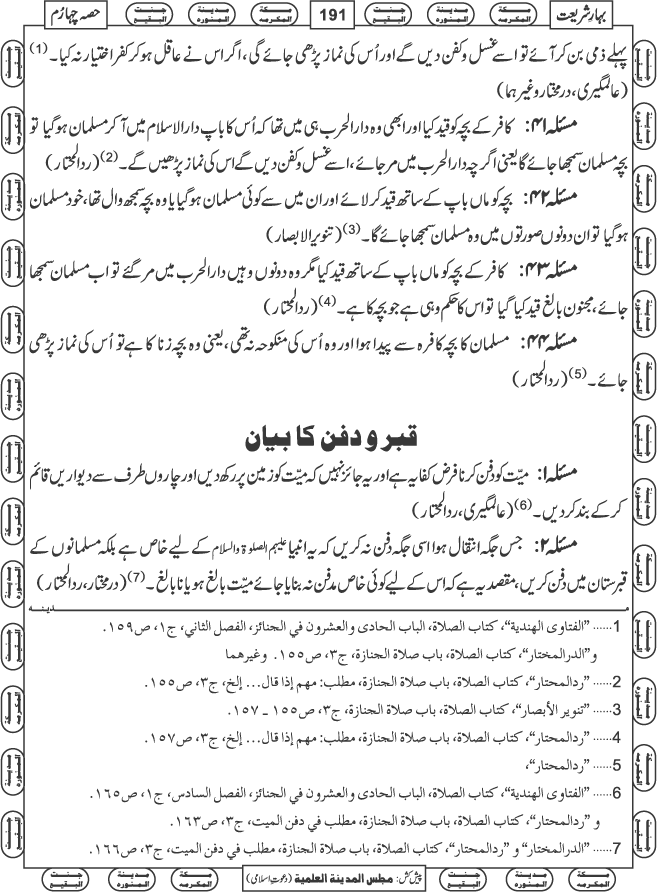 بہارِ شریعت
191
حصہ چہارم
پہلے ذمی بن کر آئے تو اسے غسل و کفن دیں گے اور اُس کی نماز پڑھی جائے گی، اگر اس نے عاقل ہو کر کفر اختیار نہ کیا۔ (1)
(عالمگیری، درمختار وغیرہما)
مسئلہ ۴۱: کافر کے بچہ کو قید کیا اور ابھی وہ دارالحرب ہی میں تھا کہ اُس کا باپ دارالاسلام میں آ کر مسلمان ہوگیا تو
بچہ مسلمان سمجھا جائے گا یعنی اگرچہ دارالحرب میں مر جائے، اسے غسل و کفن دیں گے اس کی نماز پڑھیں گے۔ (2) (ردالمحتار)
مسئلہ ۴۲: بچہ کو ماں باپ کے ساتھ قید کر لائے اور ان میں سے کوئی مسلمان ہوگیا یا وہ بچہ سمجھ وال تھا، خود مسلمان
ہوگیا تو ان دونوں صورتوں میں وہ مسلمان سمجھا جائے گا۔ (3) (تنویر الابصار)
مسئلہ ۴۳: کافر کے بچہ کو ماں باپ کے ساتھ قید کیا مگر وہ دونوں وہیں دارالحرب میں مر گئے تو اب مسلمان سمجھا
جائے، مجنون بالغ قید کیا گیا تو اس کا حکم وہی ہے جو بچہ کا ہے۔ (4) (ردالمحتار)
مسئلہ ۴۴: مسلمان کا بچہ کافرہ سے پیدا ہوا اور وہ اُس کی منکوحہ نہ تھی، یعنی وہ بچہ زنا کا ہے تو اُس کی نماز پڑھی
جائے۔ (5) (ردالمحتار)
قبر و دفن کا بیان
مسئلہ ۱: میّت کو دفن کرنا فرض کفایہ ہے اور یہ جائز نہیں کہ میّت کو زمین پر رکھ دیں اور چاروں طرف سے دیواریں قائم
کر کے بند کر دیں۔ (6) (عالمگیری، ردالمحتار)
مسئلہ ۲: جس جگہ انتقال ہوا اسی جگہ دفن نہ کریں کہ یہ انبیا علیہم الصلوۃ والسلام کے لیے خاص ہے بلکہ مسلمانوں کے
قبرستان میں دفن کریں، مقصد یہ ہے کہ اس کے لیے کوئی خاص مدفن نہ بنایا جائے میّت بالغ ہو یا نابالغ۔ (7) (درمختار، ردالمحتار)
مدینه
1...... ”الفتاوى الهندية“، كتاب الصلاة، الباب الحادى والعشرون في الجنائز، الفصل الثاني، ج١، ص١٥٩.
و ”الدرالمختار“، كتاب الصلاة، باب صلاة الجنازة، ج٣، ص١٥٥. وغيرهما
2...... ”ردالمحتار“، كتاب الصلاة، باب صلاة الجنازة، مطلب: مهم إذا قال... إلخ، ج٣، ص١٥٥.
3...... ”تنوير الأبصار“، كتاب الصلاة، باب صلاة الجنازة، ج٣، ص١٥٥ ـ ١٥٧.
4...... ”ردالمحتار“، كتاب الصلاة، باب صلاة الجنازة، مطلب: مهم إذا قال... إلخ، ج٣، ص١٥٧.
5...... ”ردالمحتار“،
6...... ”الفتاوى الهندية“، كتاب الصلاة، الباب الحادى والعشرون في الجنائز، الفصل السادس، ج١، ص١٦٥.
و ”ردالمحتار“، كتاب الصلاة، باب صلاة الجنازة، مطلب في دفن الميت، ج٣، ص١٦٣.
7...... ”الدرالمختار“ و ”ردالمحتار“، كتاب الصلاة، باب صلاة الجنازة، مطلب في دفن الميت، ج٣، ص١٦٦.
پیش کش: مجلس المدينة العلمية (دعوتِ اسلامی)
مكة المكرمه
مدينة المنوره
جنت البقيع